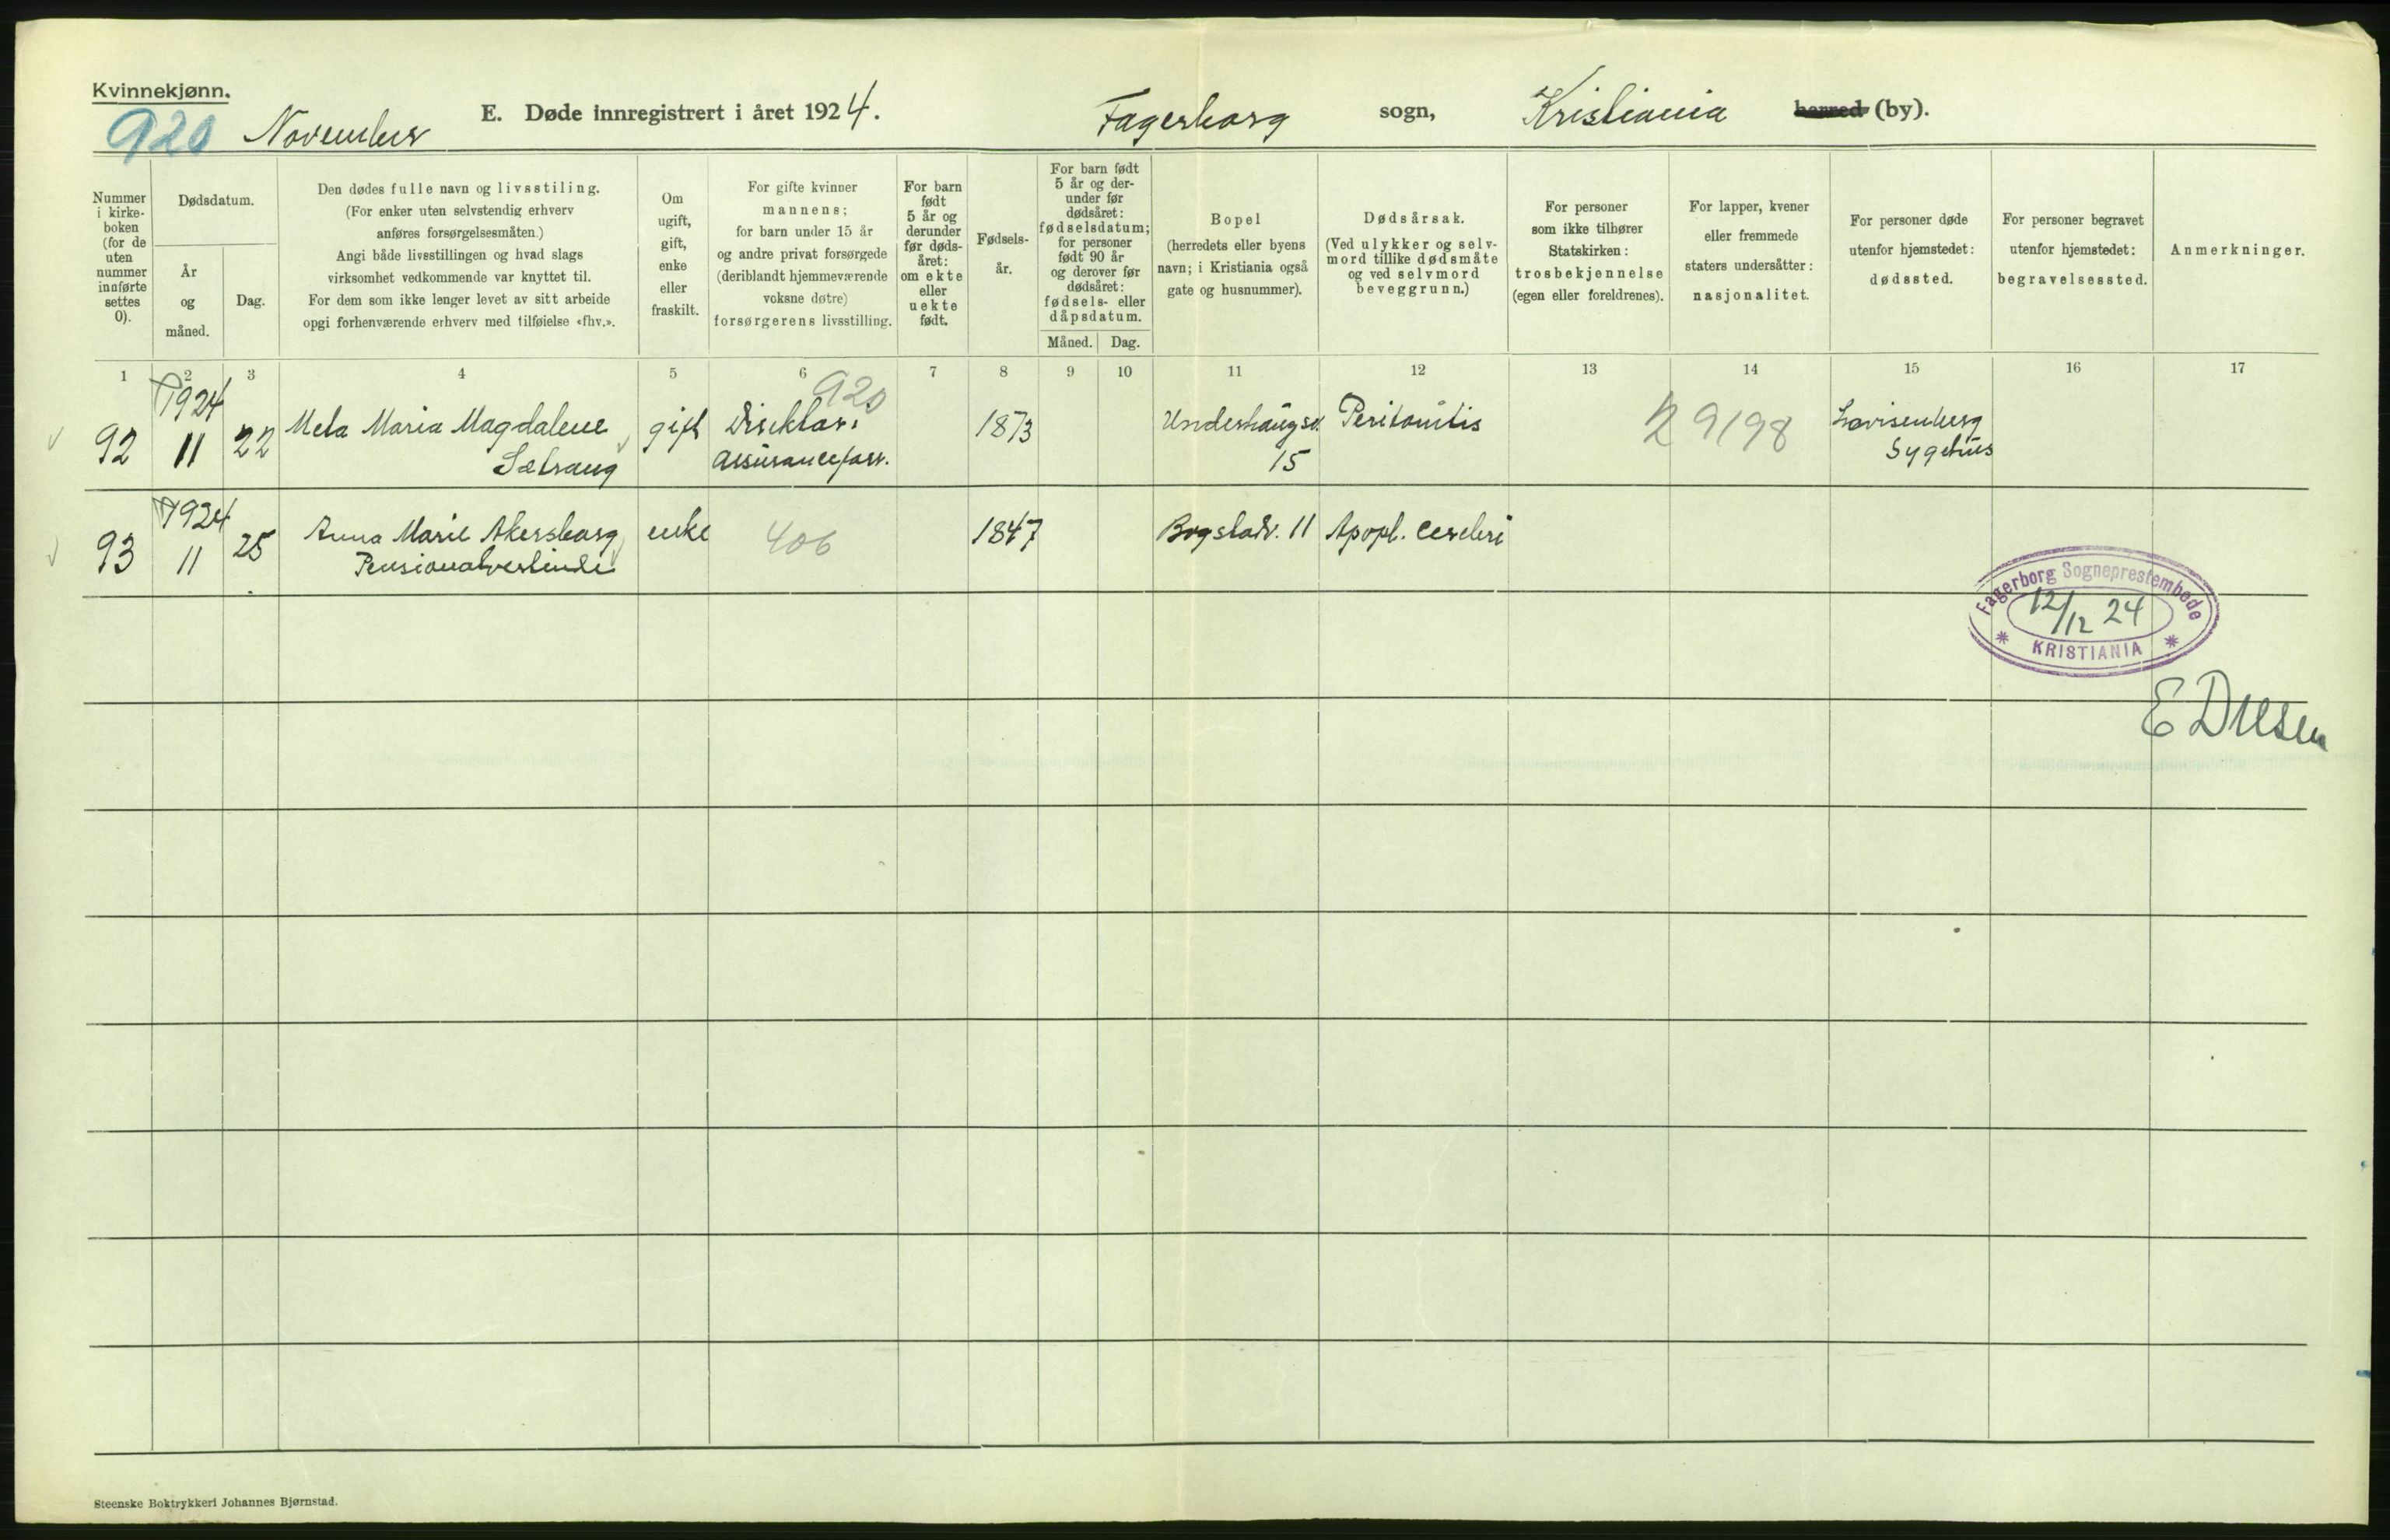 Kvinnekjønn.
920 November
E. Døde innregistrert i året 1924.
Fagerborg sogn, Kristiania herred (by).
Nummer i kirke-boken (for de uten nummer innførte settes 0).
Dødsdatum.
År og måned.
Dag.
Den dødes fulle navn og livsstiling.
(For enker uten selvstendig erhverv
anføres forsørgelsesmåten.)
Angi både livsstillingen og hvad slags
virksomhet vedkommende var knyttet til.
For dem som ikke lenger levet av sitt arbeide
opgi forhenværende erhverv med tilføielse «fhv.».
Om
ugift,
gift,
enke
eller
fraskilt.
For gifte kvinner
mannens;
for barn under 15 år
og andre privat forsørgede
(deriblandt hjemmeværende
voksne døtre)
forsørgerens livsstilling.
For barn
født
5 år og
derunder
før døds-
året:
om ekte
eller
uekte
født.
Fødsels-
år.
For barn født
5 år og der-
under før
dødsåret:
fødselsdatum;
for personer
født 90 år
og derover før
dødsåret:
fødsels- eller
dåpsdatum.
Måned. Dag.
Bopel
(herredets eller byens
navn; i Kristiania også
gate og husnummer).
Dødsårsak.
(Ved ulykker og selv-
mord tillike dødsmåte
og ved selvmord
beveggrunn.)
For personer
som ikke tilhører
Statskirken:
trosbekjennelse
(egen eller foreldrenes).
For lapper, kvener
eller fremmede
staters undersåtter:
nasjonalitet.
For personer døde
utenfor hjemstedet:
dødssted.
For personer begravet
utenfor hjemstedet:
begravelsessted.
Anmerkninger.
1 2 3 4 5 6 7 8 9 10 11 12 13 14 15 16 17
920
92 1924 11 22 Meta Maria Magdalene gift Direktør i 1873 Underhaugsv. Peritonitis 29198 Lovisenberg
Sælsaug Assuranceforr. 15 Sygehus
93 1924 11 25 Anna Marie Akersborg enke 406 1847 Bogstadv. 11 Apopl. cerebri
Pensionatvertinde
Fagerborg Sogneprestembede
12/12 24
KRISTIANIA
Steenske Boktrykkeri Johannes Bjørnstad.